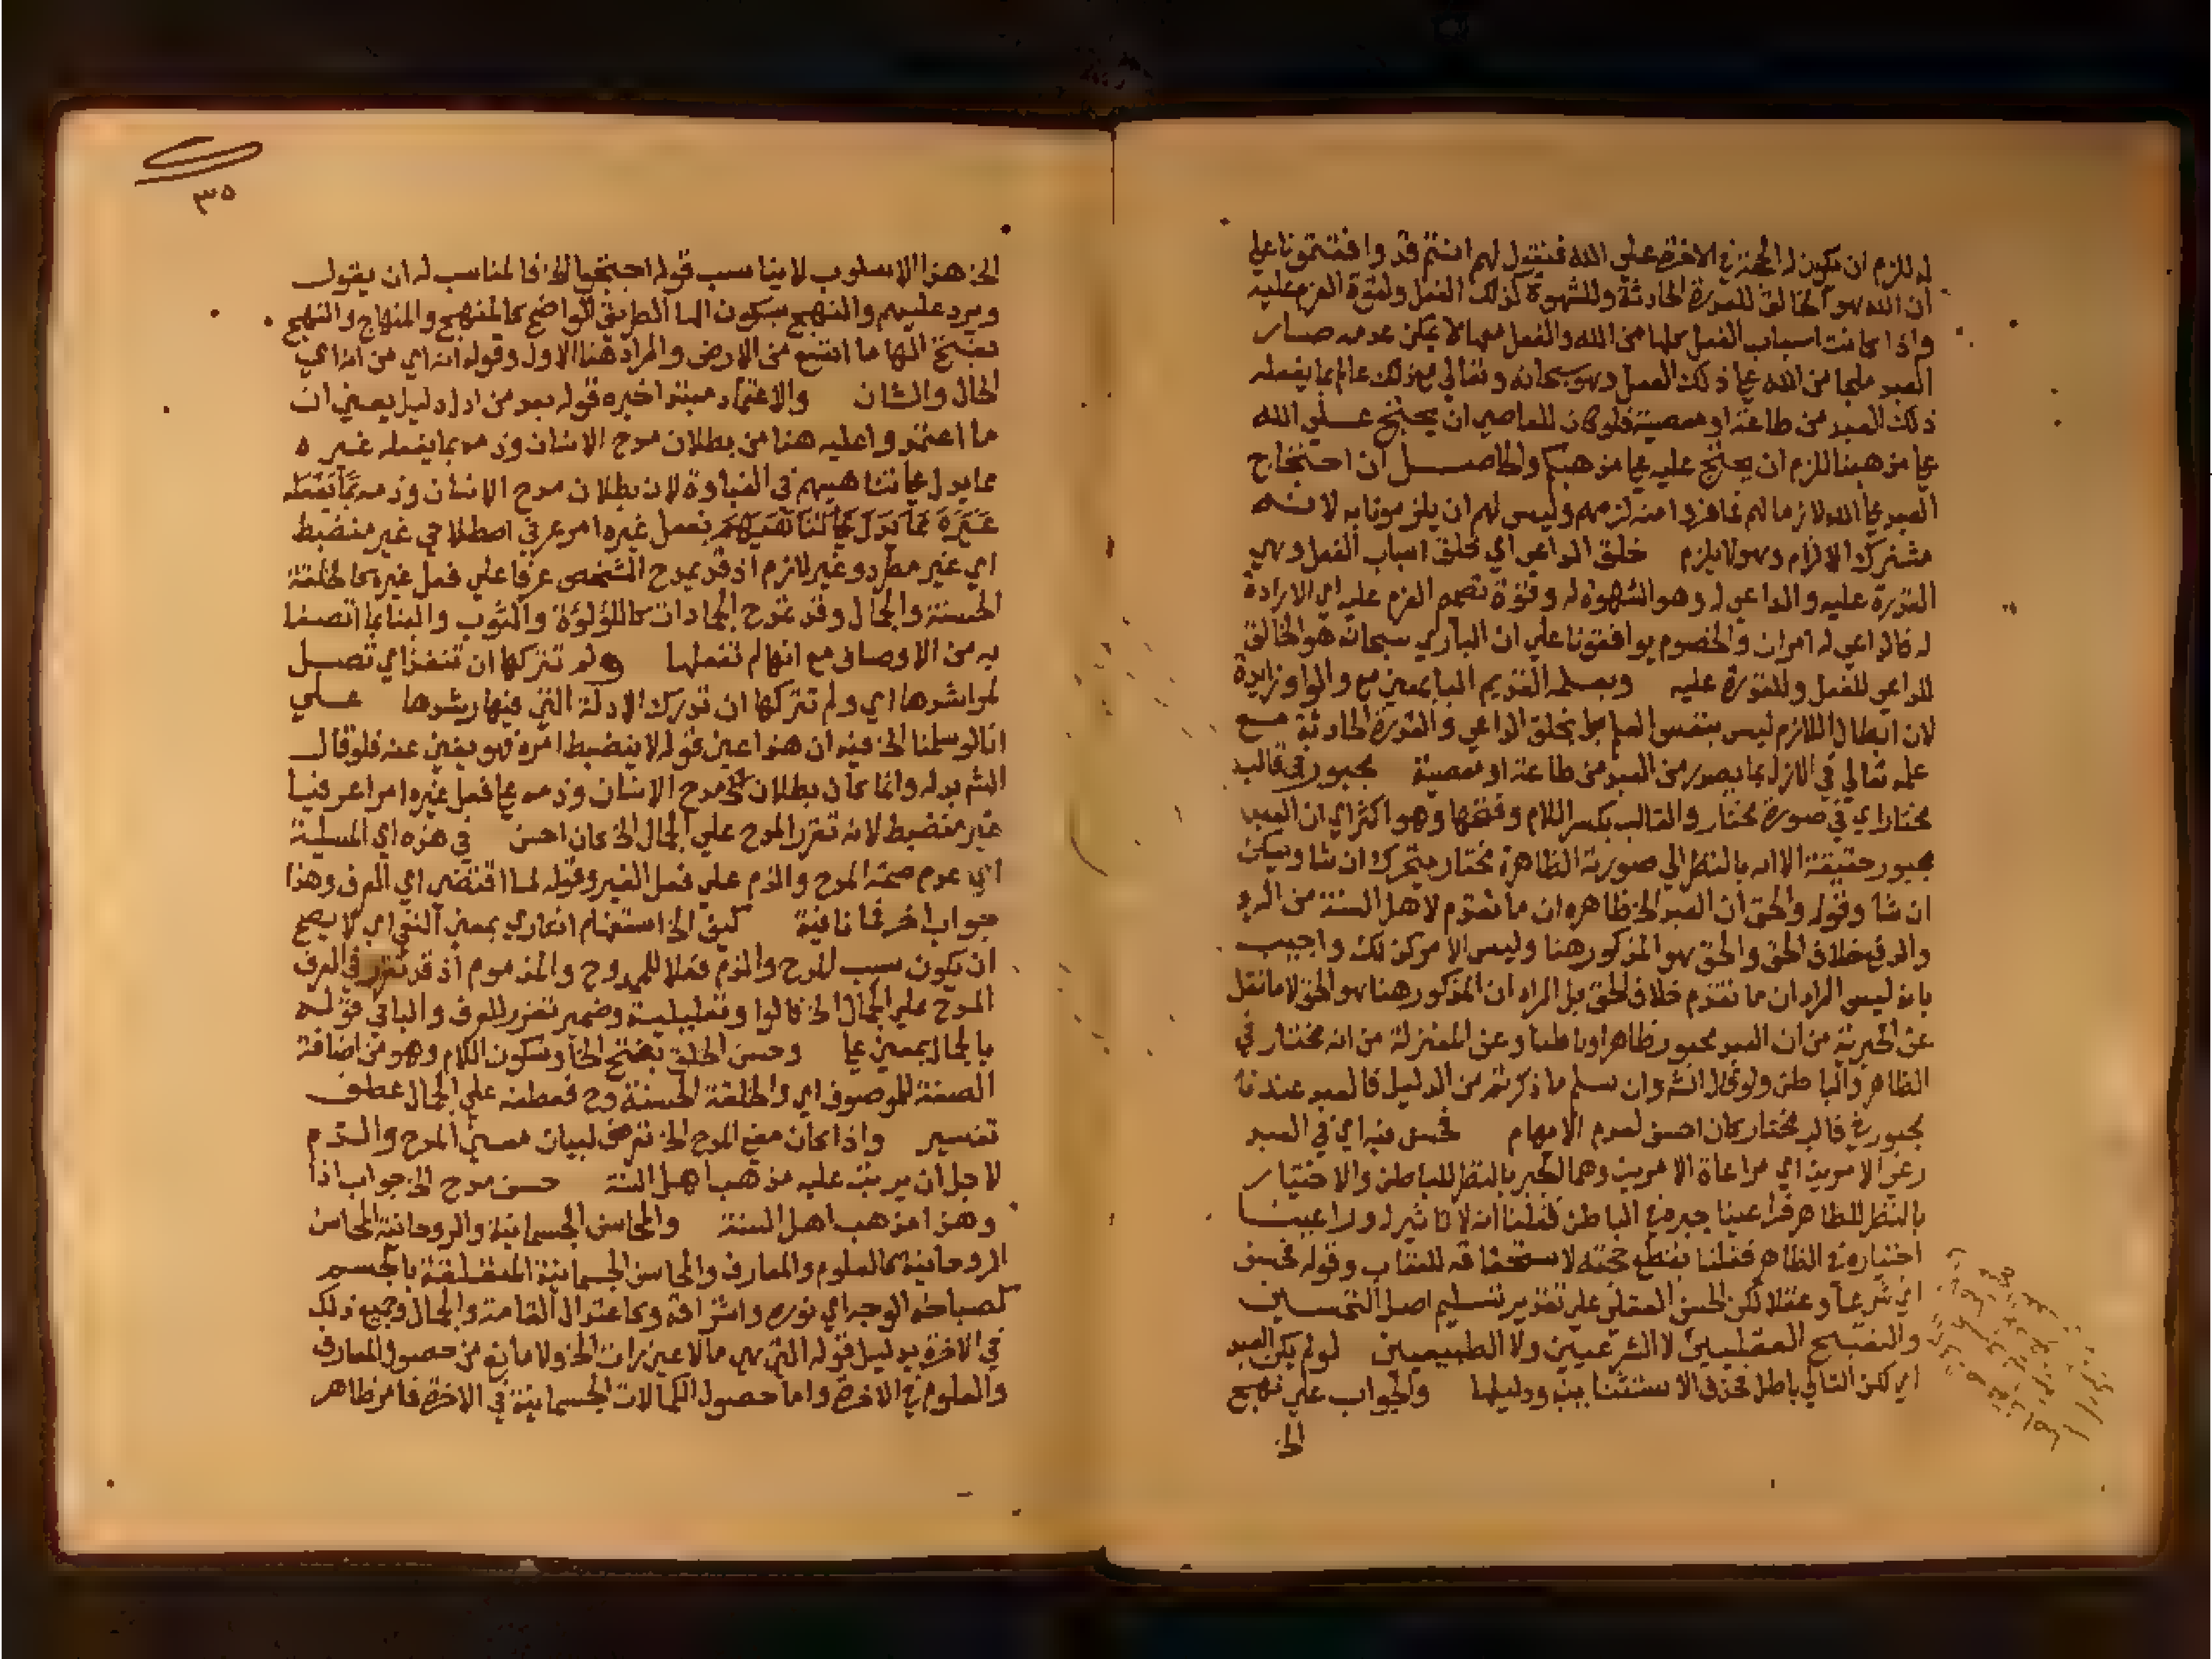 له للزم ان يكون له الحجة في الاخرة علي الله فنقول لهم انتم قد وافقتمونا علي
ان الله هو الخالق للقدرة الحادثة وللشهوة لذلك الفعل ولقوة العزم عليه
واذا كانت اسباب الفعل كلها من الله والفعل معها لا يمكن عدمه صار
العبد ملجا من الله علي ذلك الفعل وهو سبحانه وتعالي مع ذلك عالم بما يفعله
ذلك العبد من طاعة او معصية فلو كان للعاصي ان يحتج علي الله
علي مذهبنا للزم ان يحتج عليه علي مذهبكم والحاصل ان احتجاج
العبد علي الله لازما لهم فما فروا منه لزمهم وليس لهم ان يلزمونا به لانه
مشترك الالزام وهو لا يلزم خلق الداعي اي خلق اسباب الفعل وهي
القدرة عليه والداعي له وهو الشهوة له وقوة تصمم العزم عليه اي الارادة
له فالداعي له امران والخصوم يوافقونا علي ان الباري سبحانه هو الخالق
للداعي للفعل وللقدرة عليه وبعلمه القديم البا بمعني مع والواو زايدة
لان ابطال اللازم ليس بنفس العلم بل بخلق الداعي والقدرة الحادثة مع
علمه تعالي في الازل بما يصدر من العبد من طاعة او معصية مجبور في قالب
مختار اي في صورة مختار والقالب بكسر اللام وفتحها وهو اكثر اي ان العبد
مجبور حقيقة الا انه بالنظر الي صورته الظاهرة مختار يتحرك ان شا ويسكن
ان شا وقوله والحق ان العبد الخ ظاهره ان ما تقدم لاهل السنة من الرد
والدفع خلاف الحق والحق هو المذكور هنا وليس الامر كذلك واجيب
بانه ليس المراد ان ما تقدم خلاف الحق بل المراد ان المذكور هنا هو الحق لا ما نقل
عن الجبرية من ان العبد مجبور ظاهرا وباطنا وعن المعتزلة من انه مختار في
الظاهر والباطن ولو قال الش وان سلم ما ذكرتم من الدليل فالعبد عندنا
مجبور في قالب مختار كان احسن لعدم الايهام فحسن فيه اي في العبد
رعي الامرين اي مراعاة الامرين وهما الجبر بالنظر للباطن والاختيار
بالنظر للظاهر فراعينا جبره في الباطن فقلنا انه لا تاثير له وراعينا
اختياره في الظاهر فقلنا بقطع حجته لاستحقاقه للعقاب وقوله فحسن
اي شرعا وعقلا لكن الحسن العقلي علي تقدير تسليم اصل التحسين
والتقبيح العقليين لا الشرعيين ولا الطبيعيين لو لم يكن العبد
اي لكن التالي باطل فحذف الاستثنائية ودليلها والجواب علي نهج
الخ
٣٥
الخ هذا الاسلوب لا يناسب قوله احتجوا الخ فالمناسب له ان يقول
ويرد عليهم والنهج بسكون الها الطريق الواضح كالمنهج والمنهاج والنهج
بفتح الها ما اتسع من الارض والمراد هنا الاول وقوله انه اي من انه اي
الحال والشان والاعتماد مبتدا خبره قوله بعد من ادل دليل يعني ان
ما اعتمدوا عليه هنا من بطلان مدح الانسان وذمه بما يفعله غيره
مما يدل علي تناهيهم في الغباوة لان بطلان مدح الانسان وذمه بما يفعله
غيره مما يدل علي تناهيهم بفعل غيره امر عرفي اصطلاحي غير منضبط
اي غير مطرد وغير لازم اذ قد يمدح الشخص عرفا علي فعل غيره كالخلقة
الحسنة والجمال وقد تمدح الجمادات كاللؤلؤة والثوب والبنا بما اتصفا
به من الاوصاف مع انها لم تفعلها ولم تتركها ان تنفذ اي تصل
لمراشدها اي ولم تتركها ان تدرك الادلة التي فيها رشدها علي
انا لو سلمنا الخ فيه ان هذا عين قوله لا ينضبط امره فهو يغني عنه فلو قال
الش بدله وانما كان بطلان مدح الانسان وذمه علي فعل غيره امرا عرفيا
غير منضبط لانه تقرر المدح علي الجمال الخ كان احسن في هذه اي المسيلة
اي عدم صحة المدح والذم علي فعل الغير وقوله لما اقتضي اي العرف وهذا
جواب اخر فما نافية كيف الخ استفهام انكاري بمعني النفي اي لا يصح
ان يكون سبب المدح والذم فعلا للممدوح والمذموم اذ قد تقرر في العرف
المدح علي الجمال الخ فالواو تعليلية وضمير تقرر للعرف والبا في قوله
بالجمال بمعني علي وحسن الخلق بفتح الخا وسكون اللام وهو من اضافة
الصفة للموصوف اي والخلقة الحسنة وح فعطفه علي الجمال عطف
تفسير واذا كان معني المدح الخ تعرض لبيان معني المدح والذم
لاجل ان يرتب عليه مذهب اهل السنة حسن مدح الخ جواب اذا
وهذا مذهب اهل السنة والمحاسن الجسمانية والروحانية المحاسن
الروحانية كالعلوم والمعارف والمحاسن الجسمانية المتعلقة بالجسم
كصباحة الوجه اي نوره واشراقه وكاعتدال القامة والجمال وجميع ذلك
في الاخرة بدليل قوله التي هي مالا عين رات الخ ولا مانع من حصول المعارف
والعلوم في الاخرة واما حصول الكمالات الجسمانية في الاخرة فامر ظاهر